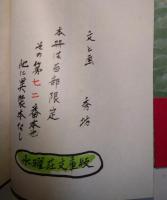 文と画　秀坊
本册は百部限定
その第七二番本也
他に異装本なし
水曜荘文庫版